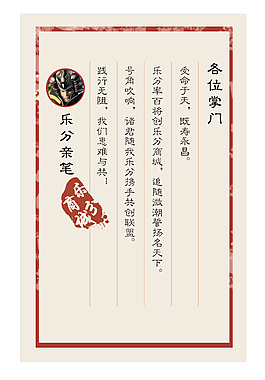 各位掌门
受命于天，既寿永昌。
乐分率百将创乐分商城，追随微潮誓扬名天下。
号角吹响，诸君随我乐分携手共创联盟。
践行无阻，我们患难与共：
乐分亲笔
乐分商城